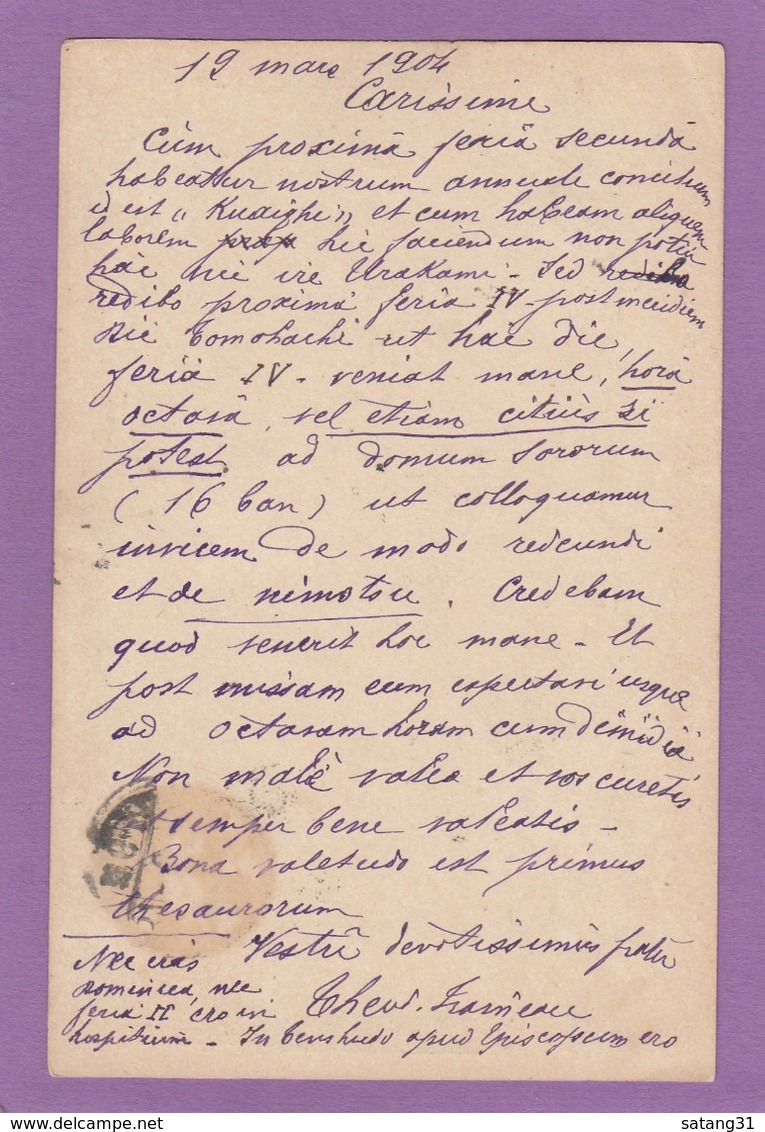 19 mars 1904
Carissime
Cùm proximâ feriâ secundâ
habeatur nostrum annuale concilium
id est "Kuaighi" et cum habeam aliquem
laborem hic faciendum non potui
hac ire Urakami - Sed
redibo proximâ feriâ IV - post meridiem
Dic Tomohachi ut hac die,
feriâ IV - veniat mane, horâ
octavâ, vel etiam citiùs si
potest, ad domum Sororum
(16 ban) ut colloquamur
invicem de modo redeundi
et de nimotsu. Credebam
quod venerit hoc mane - Et
post missam eum expectavi usque
ad octavam horam cum dimidiâ
Non malè valeo et vos curetis
ut semper bene valeatis -
Bona valetudo est primus
thesaurorum
Vestrî devotissimus frater
Theod.
Nec cras
Dominica, nec
feria II, ero in
hospitium - In apud Episcopum ero
satang31